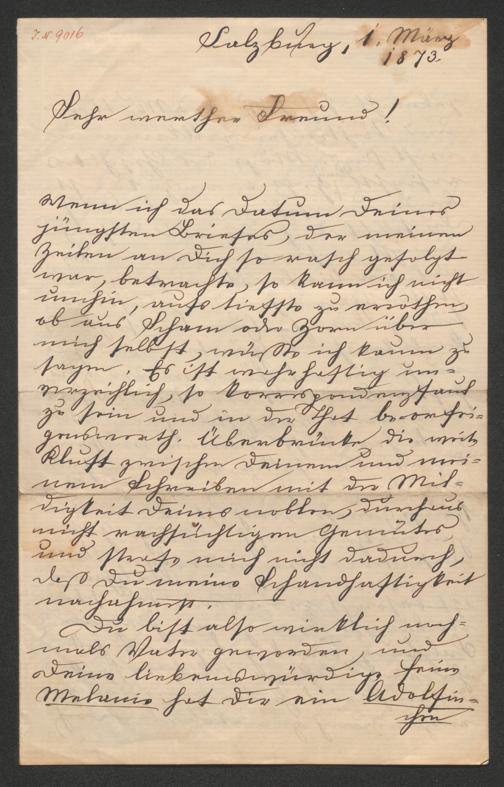 J.N 9016
Salzburg, 1. März
1873.
Sehr werther Freund!
Wenn ich das Datum Deines
jüngsten Briefes, der meinen
Zeilen an Dich so rasch gefolgt
war, betrachte, so kann ich nicht
umhin, aufs tiefste zu erröthen,
ob aus Scham oder Zorn über
mich selbst, wüßte ich kaum zu
sagen. Es ist wahrhaftig un-
verzeihlich, so korrespondenzfaul
zu sein und in der That beohrfei-
genswerth. Überbrücke die weite
Kluft zwischen Deinem und mei-
nem Schreiben mit der Mil-
digkeit Deines noblen, durchaus
nicht rachsüchtigen Gemütes,
und strafe mich nicht dadurch,
daß Du meine Schandhaftigkeit
nachahmst.
Du bist also wirklich noch-
mals Vater geworden, und
Deine liebenswürdige Frau
Melanie hat Dir ein Adolfin-
chen